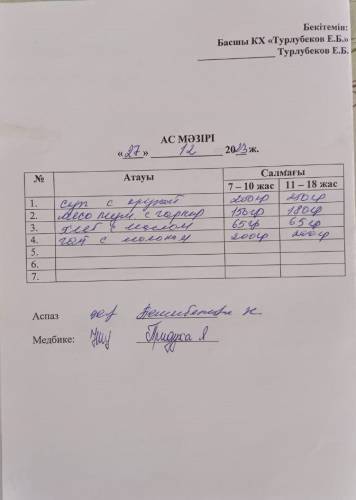 Бекітемін:
Басшы КХ «Турлубеков Е.Б.»
Турлубеков Е.Б.
АС МӘЗІРІ
«27» 12 2023 ж.
№ Атауы Салмағы
7 – 10 жас 11 – 18 жас
1. суп с 200гр
2. мясо туш. с гарнир 150гр 180гр
3. хлеб с маслом 65гр 65гр
4. чай с молоком 200гр 200гр
5.
6.
7.
Аспаз
Медбике: